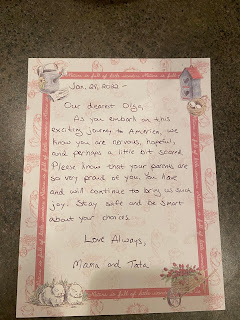 Jan. 29, 2022 -
Our dearest Olga,
As you embark on this
exciting journey to America, we
know you are nervous, hopeful,
and perhaps a little bit scared.
Please know that your parents are
so very proud of you. You have
and will continue to bring us such
joy. Stay safe and be smart
about your choices.
Love Always,
Mama and Tata